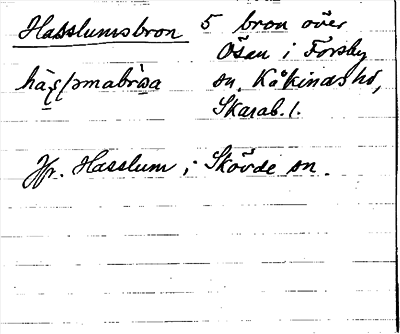 Hasslumsbron 5 bron över
Ösan i Forsby
sn, Kåkinds hd,
Skarab. l.
Jfr. Hasslum i Skövde sn.